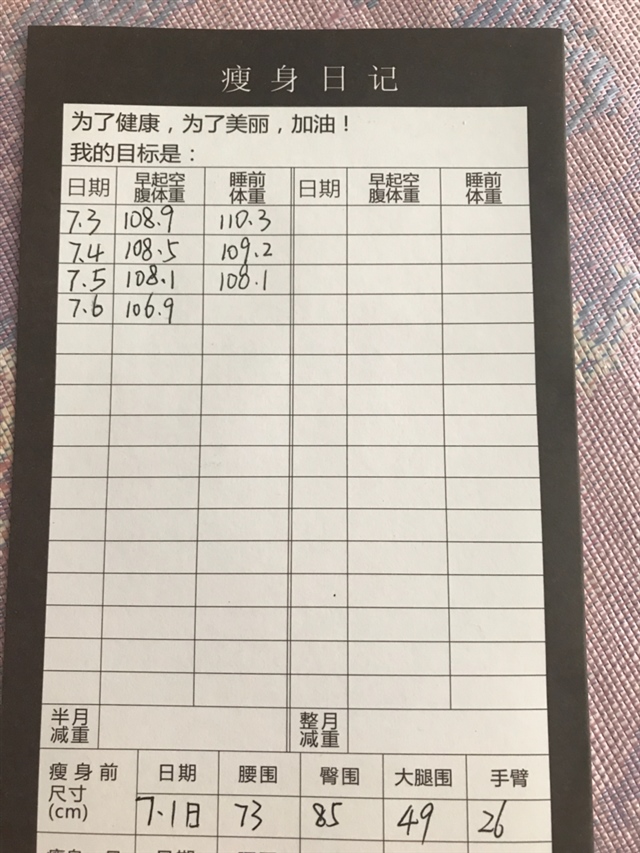 瘦身日记
为了健康，为了美丽，加油！
我的目标是：
日期 早起空腹体重 睡前体重 日期 早起空腹体重 睡前体重
7.3 108.9 110.3
7.4 108.5 109.2
7.5 108.1 108.1
7.6 106.9
半月减重 整月减重
瘦身前尺寸(cm) 日期 腰围 臀围 大腿围 手臂
7.1日 73 85 49 26